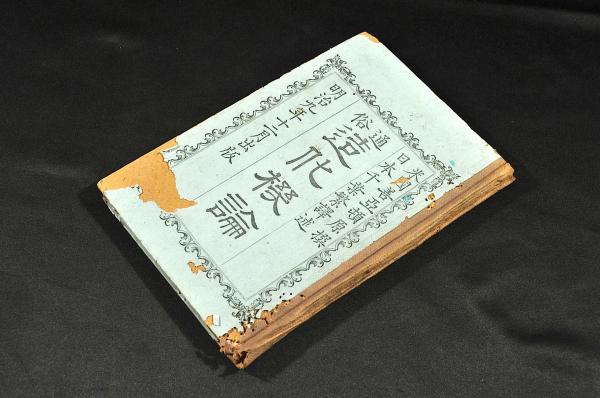 米國 善亞頓 原撰
日本 千葉繁 譯述
通俗 造化機論
明治九年十二月出版